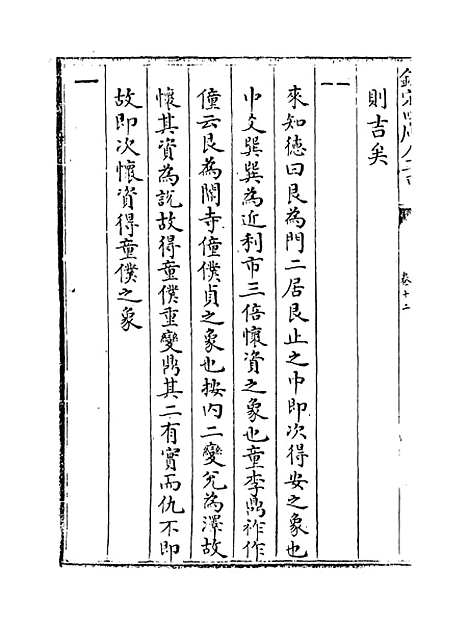 欽定四庫全書
卷十二
則吉矣
--
來知德曰艮為門二居艮止之中即次得安之象也
中爻巽巽為近利市三倍懷資之象也童李鼎祚作
僮云艮為閽寺僮僕貞之象也按内二變兊為澤故
懷其資為說故得童僕重變鼎其二有實而仇不即
故即次懷資得童僕之象
一